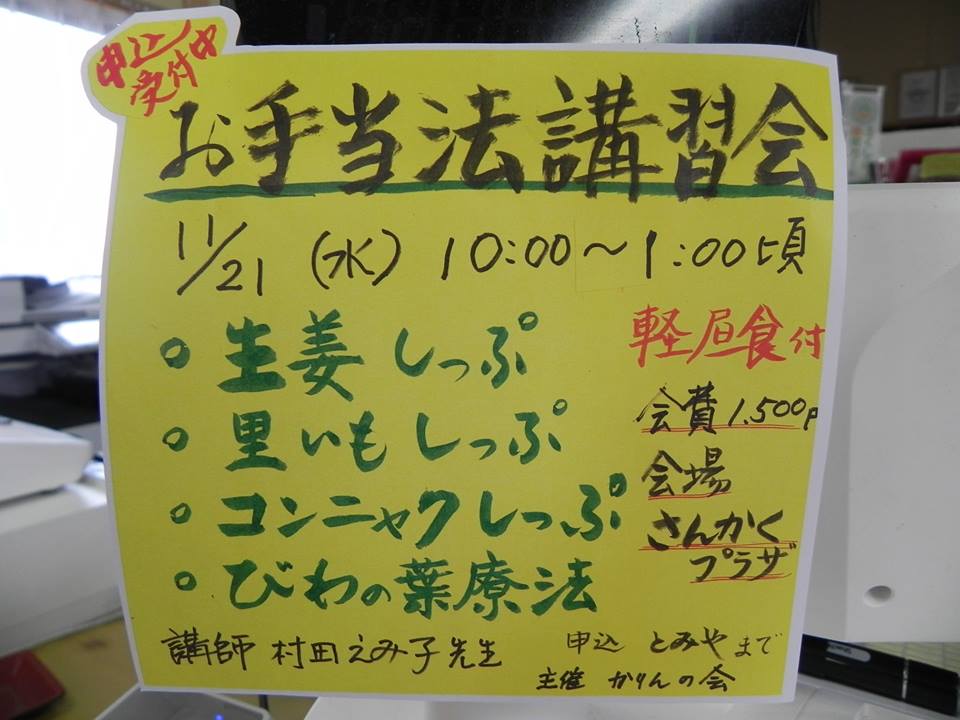 申込
受付中
お手当法講習会
11/21 (水) 10:00～1:00頃
○ 生姜しっぷ
○ 里いもしっぷ
○ コンニャクしっぷ
○ びわの葉療法
軽昼食付
会費 1.500円
会場
さんかく
プラザ
講師 村田えみ子先生
申込 とみやまで
主催 かりんの会